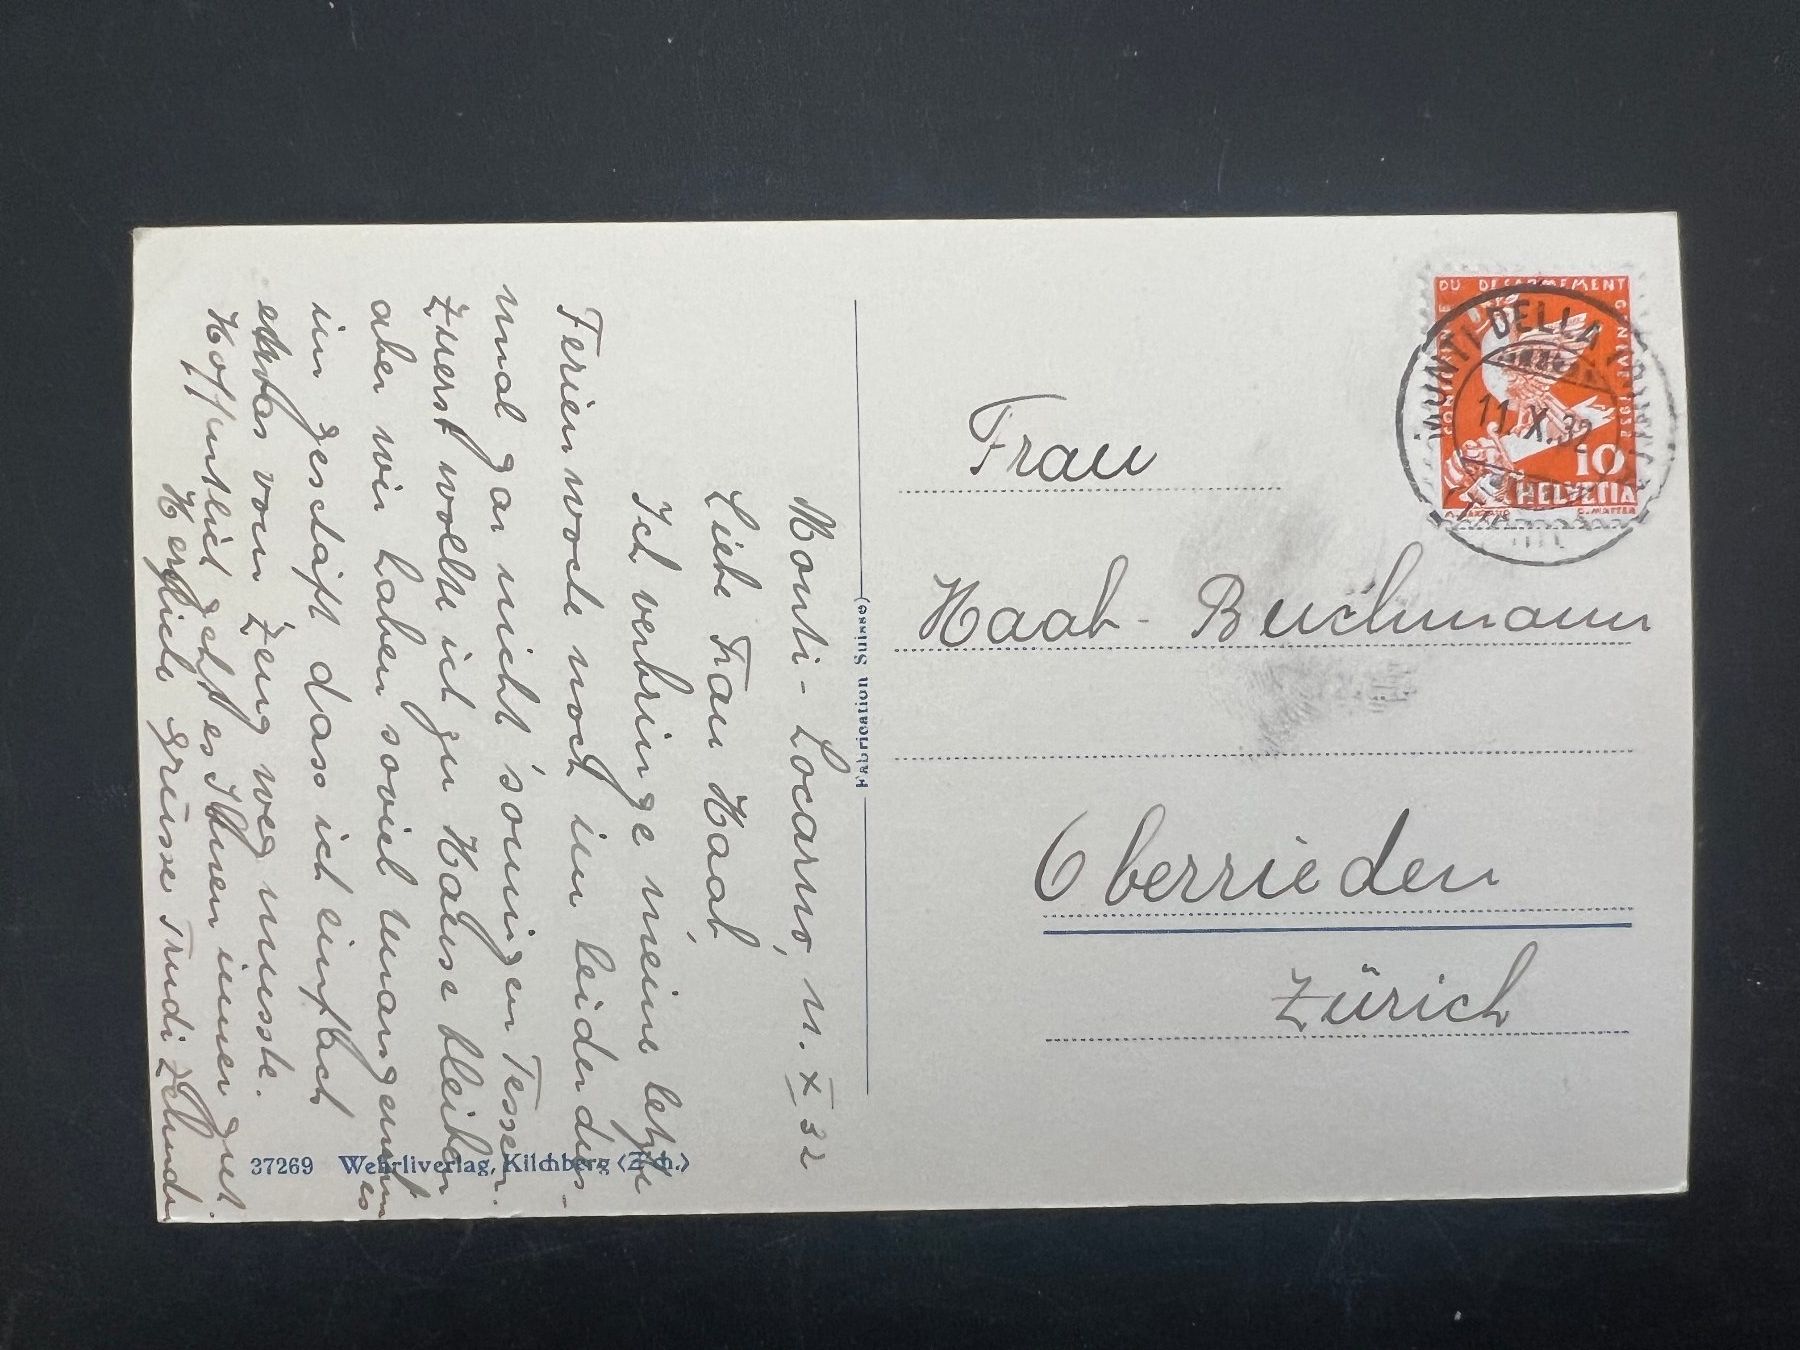 Monti-Locarno, 11. X 32
Liebe Frau Haab,
Ich verbringe meine letzte
Ferienwoche noch im leider dies-
mal gar nicht sonnigen Tessin.
Zuerst wollte ich zu Hause bleiben
aber wir haben soviel Unangenehmes
im Geschäft dass ich einfach
etwas vom Zeug weg musste.
Hoffentlich geht es Ihnen immer gut.
Herzliche Grüsse Trudi
37269 Wehrliverlag, Kilchberg (Zch.)
Fabrication Suisse
CONFERENCE DU DÉSARMEMENT GENÈVE 1932
10
HELVETIA
MONTI DELLA TRINITÀ
11.X.32
Frau
Haab-Buchmann
Oberrieden
Zürich